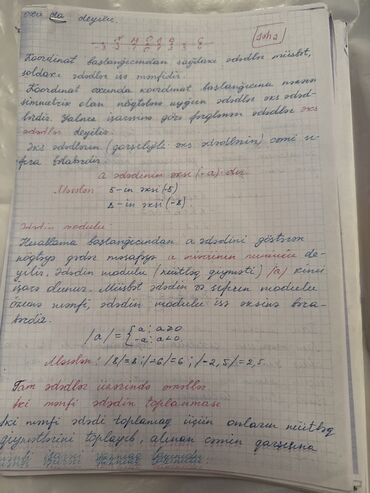 oxu deyilir.
Koordinat başlanğıcından sağdakı ədədlər müsbət,
soldakı ədədlər isə mənfidir.
Koordinat oxunda koordinat başlanğıcına nəzərən
simmetrik olan nöqtələrə uyğun ədədlər əks ədəd-
lərdir. Yalnız işarəsinə görə fərqlənən ədədlər əks
ədədlər deyilir.
Əks ədədlərin (qarşılıqlı əks ədədlərin) cəmi sı-
fıra bərabərdir.
a ədədinin əksi (-a)-dır.
Məsələn 5-in əksi (-5)
8-in əksi (-8).
modulu
Hesablama başlanğıcından a ədədini göstərən
nöqtəyə qədər məsafəyə a ədədinin modulu de-
yilir. Ədədin modulu (mütləq qiyməti) |a| kimi
işarə olunur. Müsbət ədədin və sıfırın modulu
özünə, mənfi ədədin modulu isə əksinə bəra-
bərdir.
|a|= { a; a≥0
-a; a<0
Məsələn: |8|=8; |-6|=6; |-2,5|=2,5.
Tam ədədlər üzərində əməllər
İki mənfi ədədin toplanması
İki mənfi ədədi toplamaq üçün onların mütləq
qiymətlərini toplayıb, alınan cəmin qarşısına